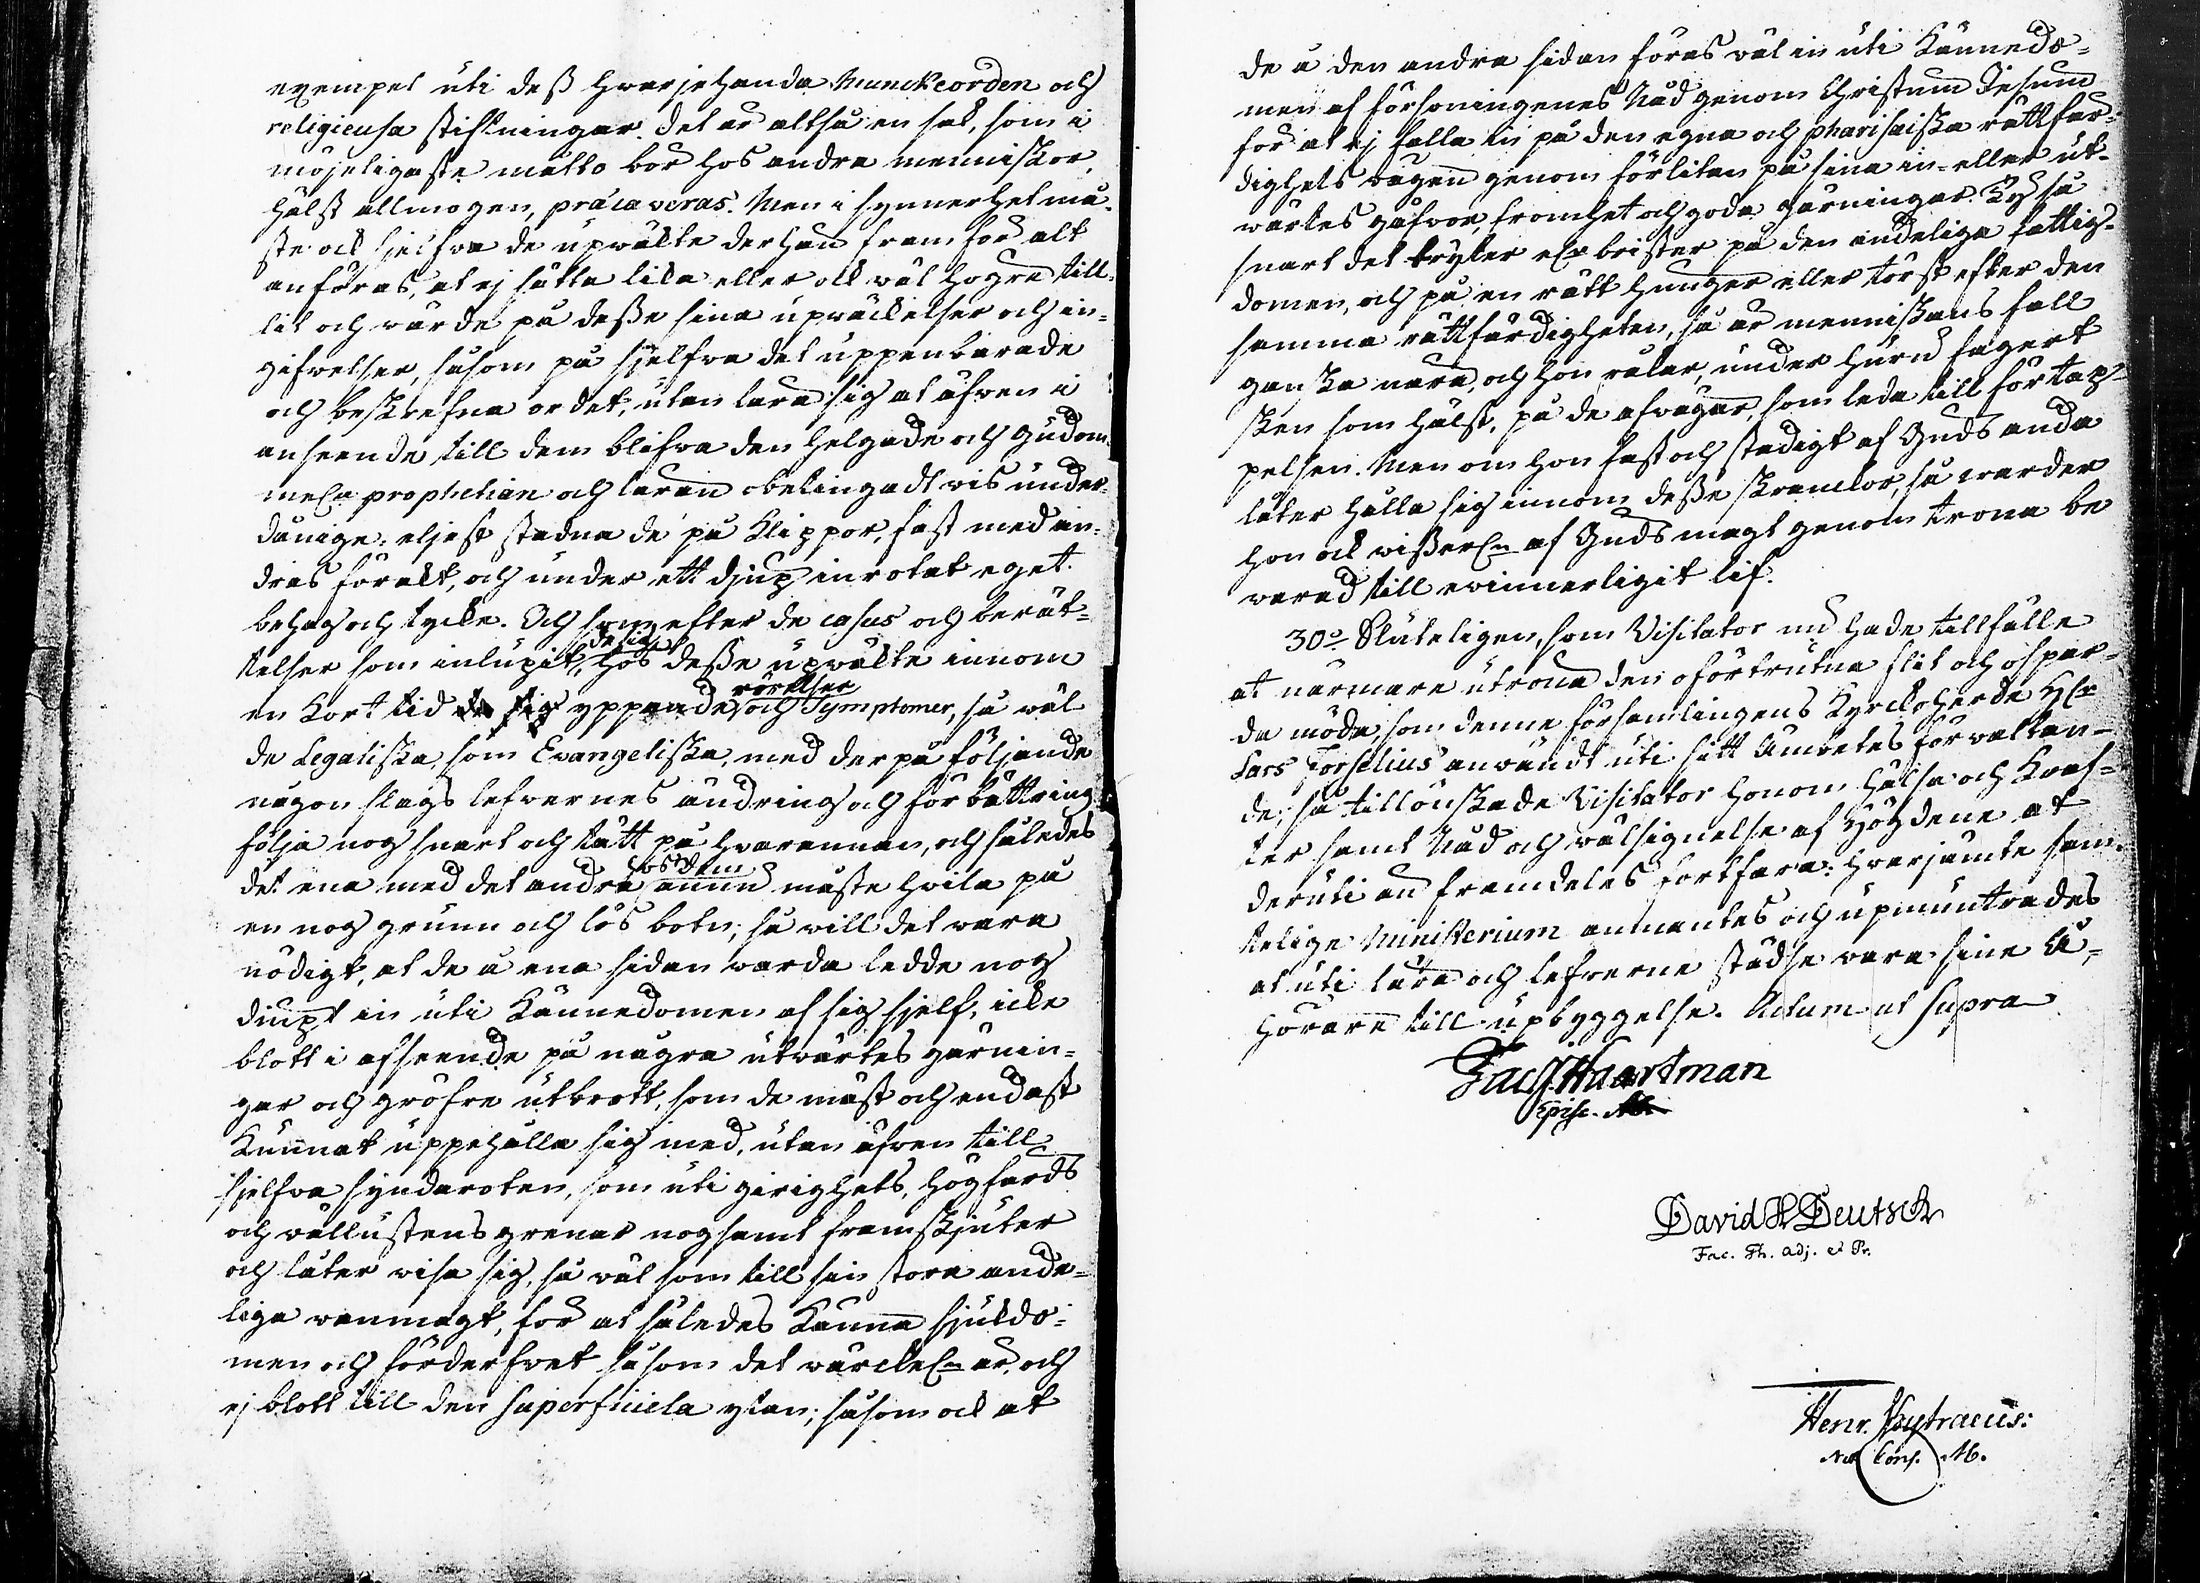 exempel uti deß hvarjehanda Munckeorden och
religieusa stiftningar. Det är altså en sak, som i
möjeligaste måtto bör hos andra menniskor,
hälst allmogen, præcaveras. Men i synnerhet må-
ste ock sjelfva de upwäkte derhän framför alt
anföras, at ej sätta lika eller ock wäl högre till-
lit och wärde på deße sina upwäckelser och in-
gifwelser, såsom på sjelfva det uppenbarade
och beskrefna ordet, utan lära sig at äfven i
anseende till dem blifva den helgade och Gudom-
mel:a prophetian och läran obetingadt vis under-
dånige: eljest stadna de på Klippor, fast med an-
dras förakt, och under ett djup inrotat eget
behag och tycke. Och som efter de casus och berät-
telser som inlupit, de sig hos deße upwäkte innom
en Kort tid yppande rörelser och Symptomer, så wäl
de Legaliska, som Evangeliska, med der på följande
någon slags lefvernes ändring och förbättring
följa nog snart och tätt på hvarannan, och således
det ena med det andra hos dem ännu måste hvila på
en nog grunn och lös botn; så will det vara
nödigt, at de å ena sidan warda ledde nog
diupt in uti Kännedomen af sig sjelf, icke
blott i afseende på några utwärtes gärnin-
gar och gröfre utbrott, som de mäst och endast
Kunnat uppehålla sig med, utan äfven till
sjelfva syndaroten, som uti girighets, högfärds
och wällustens grenar nogsamt framskjuter
och låter wisa sig, så wäl som till sin stora ande-
liga wanmagt, för at således Känna sjukdo-
men och förderfvet såsom det wärckel:n är, och
ej blott till den superficiela ytan; såsom ock at
de å den andra sidan föras wäl in uti Kännedo-
men af försoningenes Nåd genom Christum Jesum
för at ej falla in på den egna och pharisaiska rättfär-
dighets wägen genom förlitan på sina in- eller ut-
wärtes gåfvor, fromhet och goda gärningar. Ty så
snart det tryter el:r brister på den andeliga fattig-
domen, och på en rätt hunger eller törst efter den
samma rättfärdigheten, så är menniskans fall
ganska nära, och hon rålar, under huru fagert
sken som hälst, på de afvägar, som leda till förtap-
pelsen. Men om hon fast och stadigt af Guds anda
låter hålla sig innom deße skranckor, så warder
hon ock wißerl:n af Guds magt genom trona be
varad till ewinnerligit lif.
30:o Sluteligen, som Visitator nu hade tillfälle
at närmare utröna den oförtrutna flit och ospar-
da möda, som denne församlingens Kyrckoherde H:r
Lars Forselius använd uti sitt Ämbetes förvaltan-
de; så tillönskade Visitator honom hälsa och Kraf-
ter samt Nåd och wälsignelse af Högdene at
deruti än framdeles fortfara: hvarjämte sam-
telige Ministerium anmantes och upmuntrades
at uti lära och lefverne städse vara sine Å-
hörare till upbyggelse. Actum ut supra
Jac. Haartman
Episc. Ab.
David H Deutsch
Fac. Th. Adj. et Pr.
Henr.
Not. Cons. Ab.